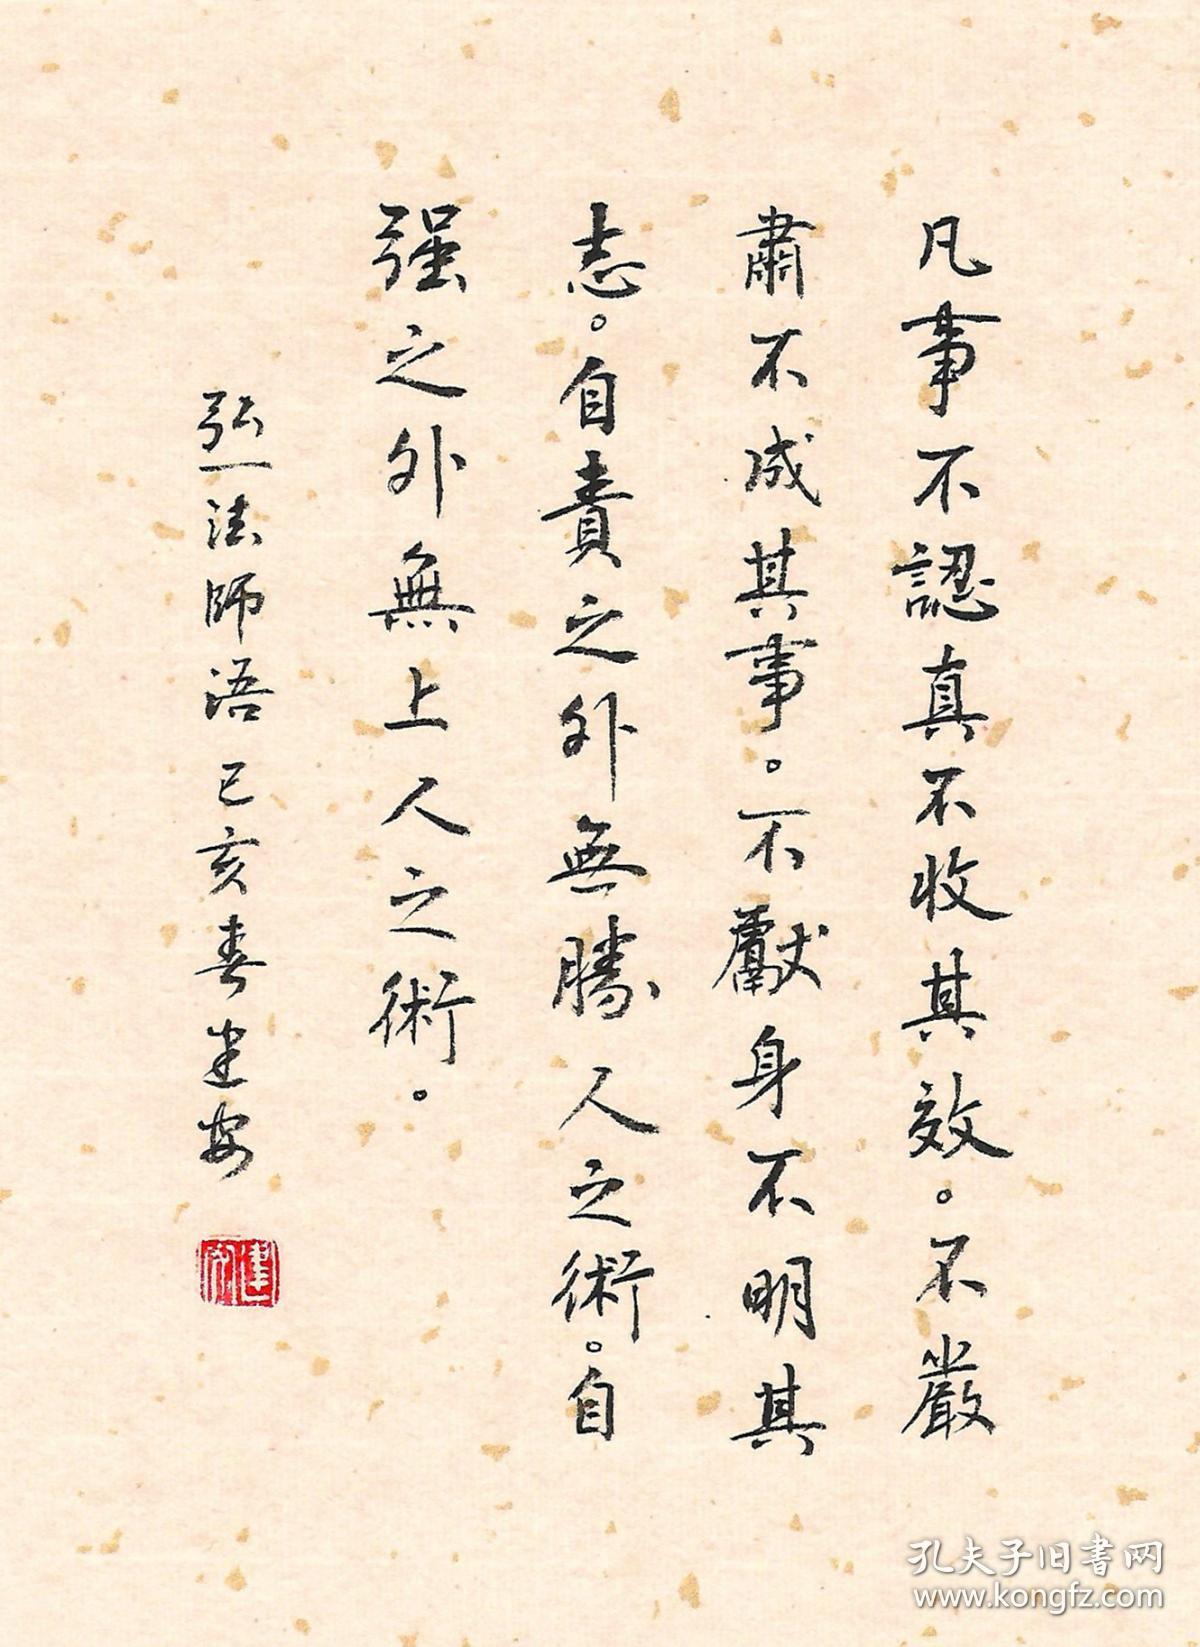 凡事不認真不收其效。不嚴
肅不成其事。不獻身不明其
志。自責之外無勝人之術。自
强之外無上人之術。
弘一法師語己亥春建安
建安
孔夫子旧書网
www.kongfz.com